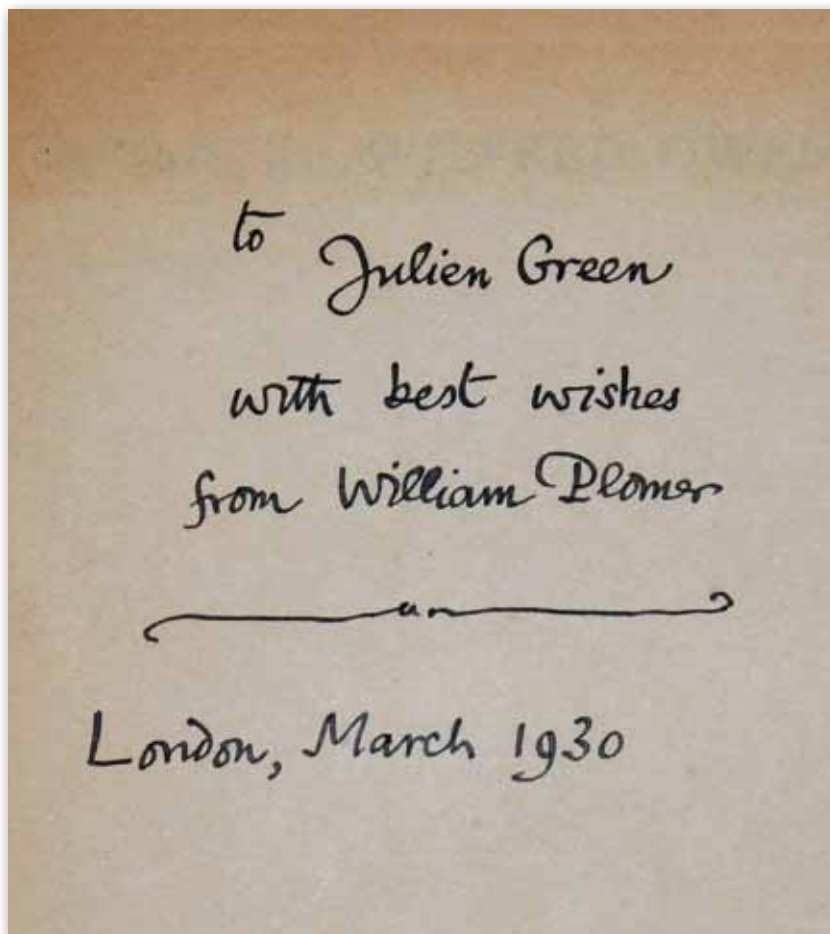 to
Julien Green
with best wishes
from William Plomer
London, March 1930